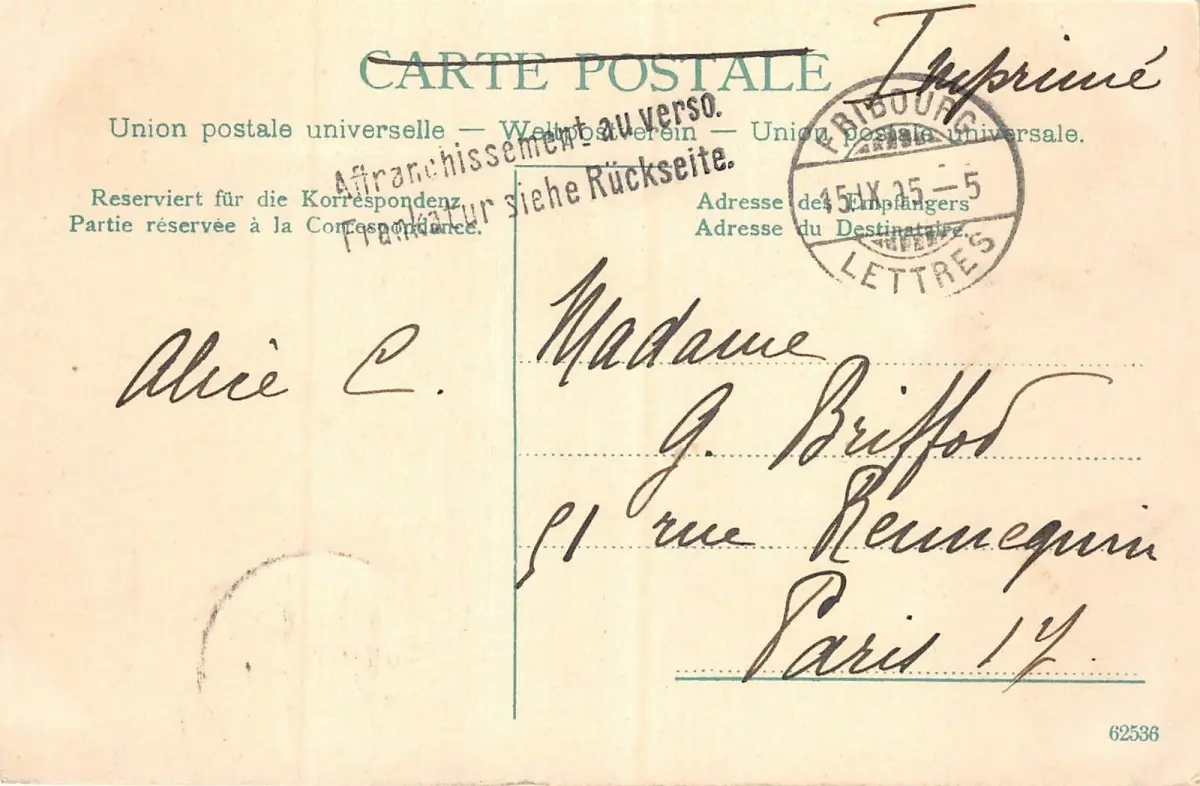 CARTE POSTALE
Imprimé
Union postale universelle — Weltpostverein — Union postale universale.
Affranchissement au verso.
Frankatur siehe Rückseite.
FRIBOURG
15.IX.05 — 5
LETTRES
Reserviert für die Korrespondenz
Partie réservée à la Correspondance.
Adresse des Empfängers
Adresse du Destinataire.
Alice C.
Madame
G. Briffod
51 rue Rennequin
Paris 17
62536